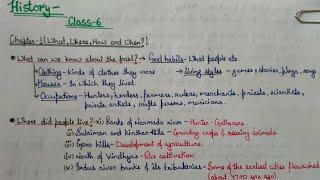 History-
Class-6
Chapter-1 (What, Where, How and When?)
• What can we know about the past? → Food habits- What people ate
→ Clothing- Kinds of clothes they wore → Living styles - games, stories, plays, song
→ Houses- In which they lived.
→ Occupations- Hunters, herders, farmers, rulers, merchants, priests, scientists,
artists, crafts persons, musicians.
• Where did people live?- (i) Banks of Narmada river- Hunter-Gatherers.
(ii) Sulaiman and Kirthar Hills- Growing crops & rearing animals.
(iii) Garo hills- Development of agriculture.
(iv) North of Vindhyas- Rice cultivation.
(v) Indus river banks & its tributaries- Some of the earliest cities flourished
(about 4700 yrs ago).